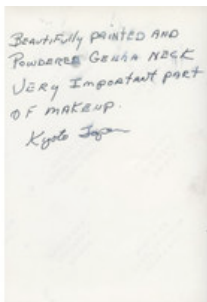 BEAUTiFully PAiNTED AND
POWDERED GEisHA NECK
VERY IMPORTANT PART
OF MAKEUP.
Kyoto Japan